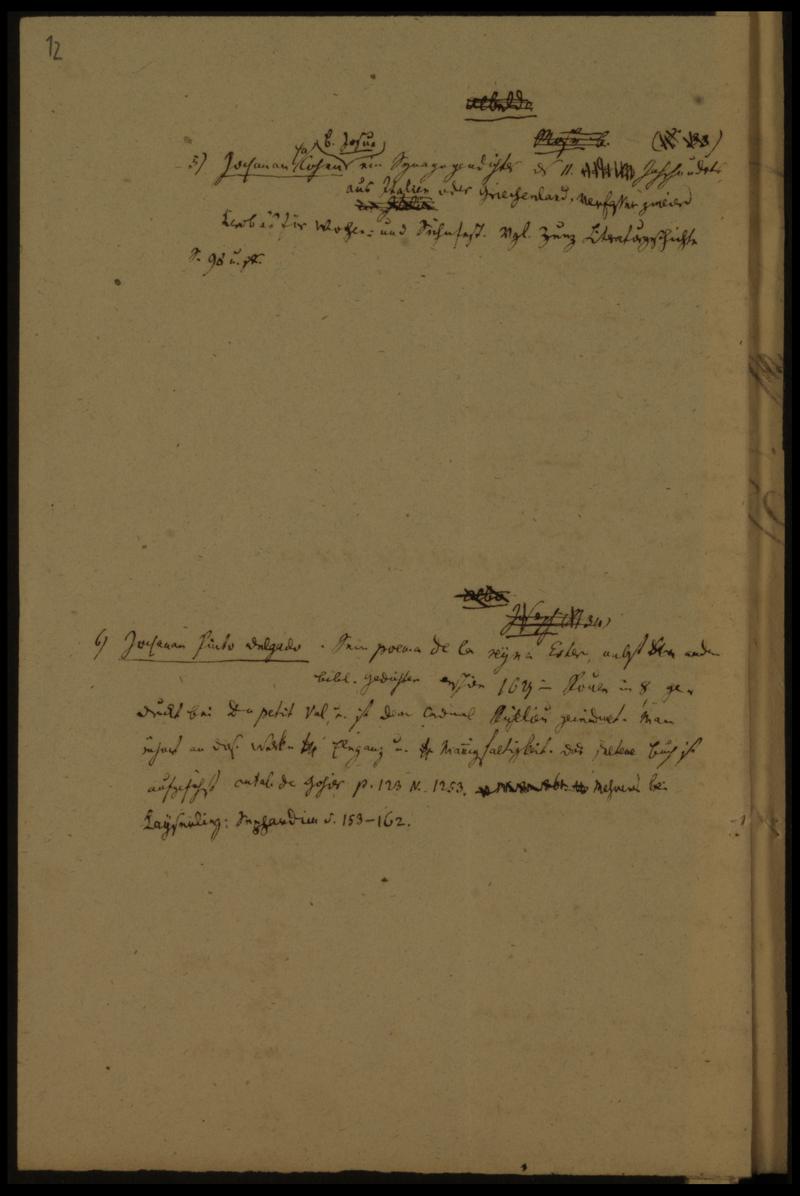 12
b. Josua
5) Jochanan ha Cohen ein Synagogendichter des 11. Jahrhunderts
aus Italien oder Griechenland, Verfasser zweier
Kerobas für Wochen- und Sühnfest. Vgl. Zunz Literaturgeschichte
S. 98 u. ff.
6) Jochanan Pinto Delgado. Sein poema de la reyna Ester, nebst andern
bibl. Gedichten 1627 in Rouen in 8 ge-
druckt bei Du petit Val, u. ist dem Cardinal Richlieu gewidmet. Man
rühmt an das. Werke Eleganz u. Mannigfaltigkeit. Das seltene Buch ist
aufgeführt catal. de Gohier p. 123 N. 1253. Mehreres bei
Kayserling: Sephardim S. 153-162.